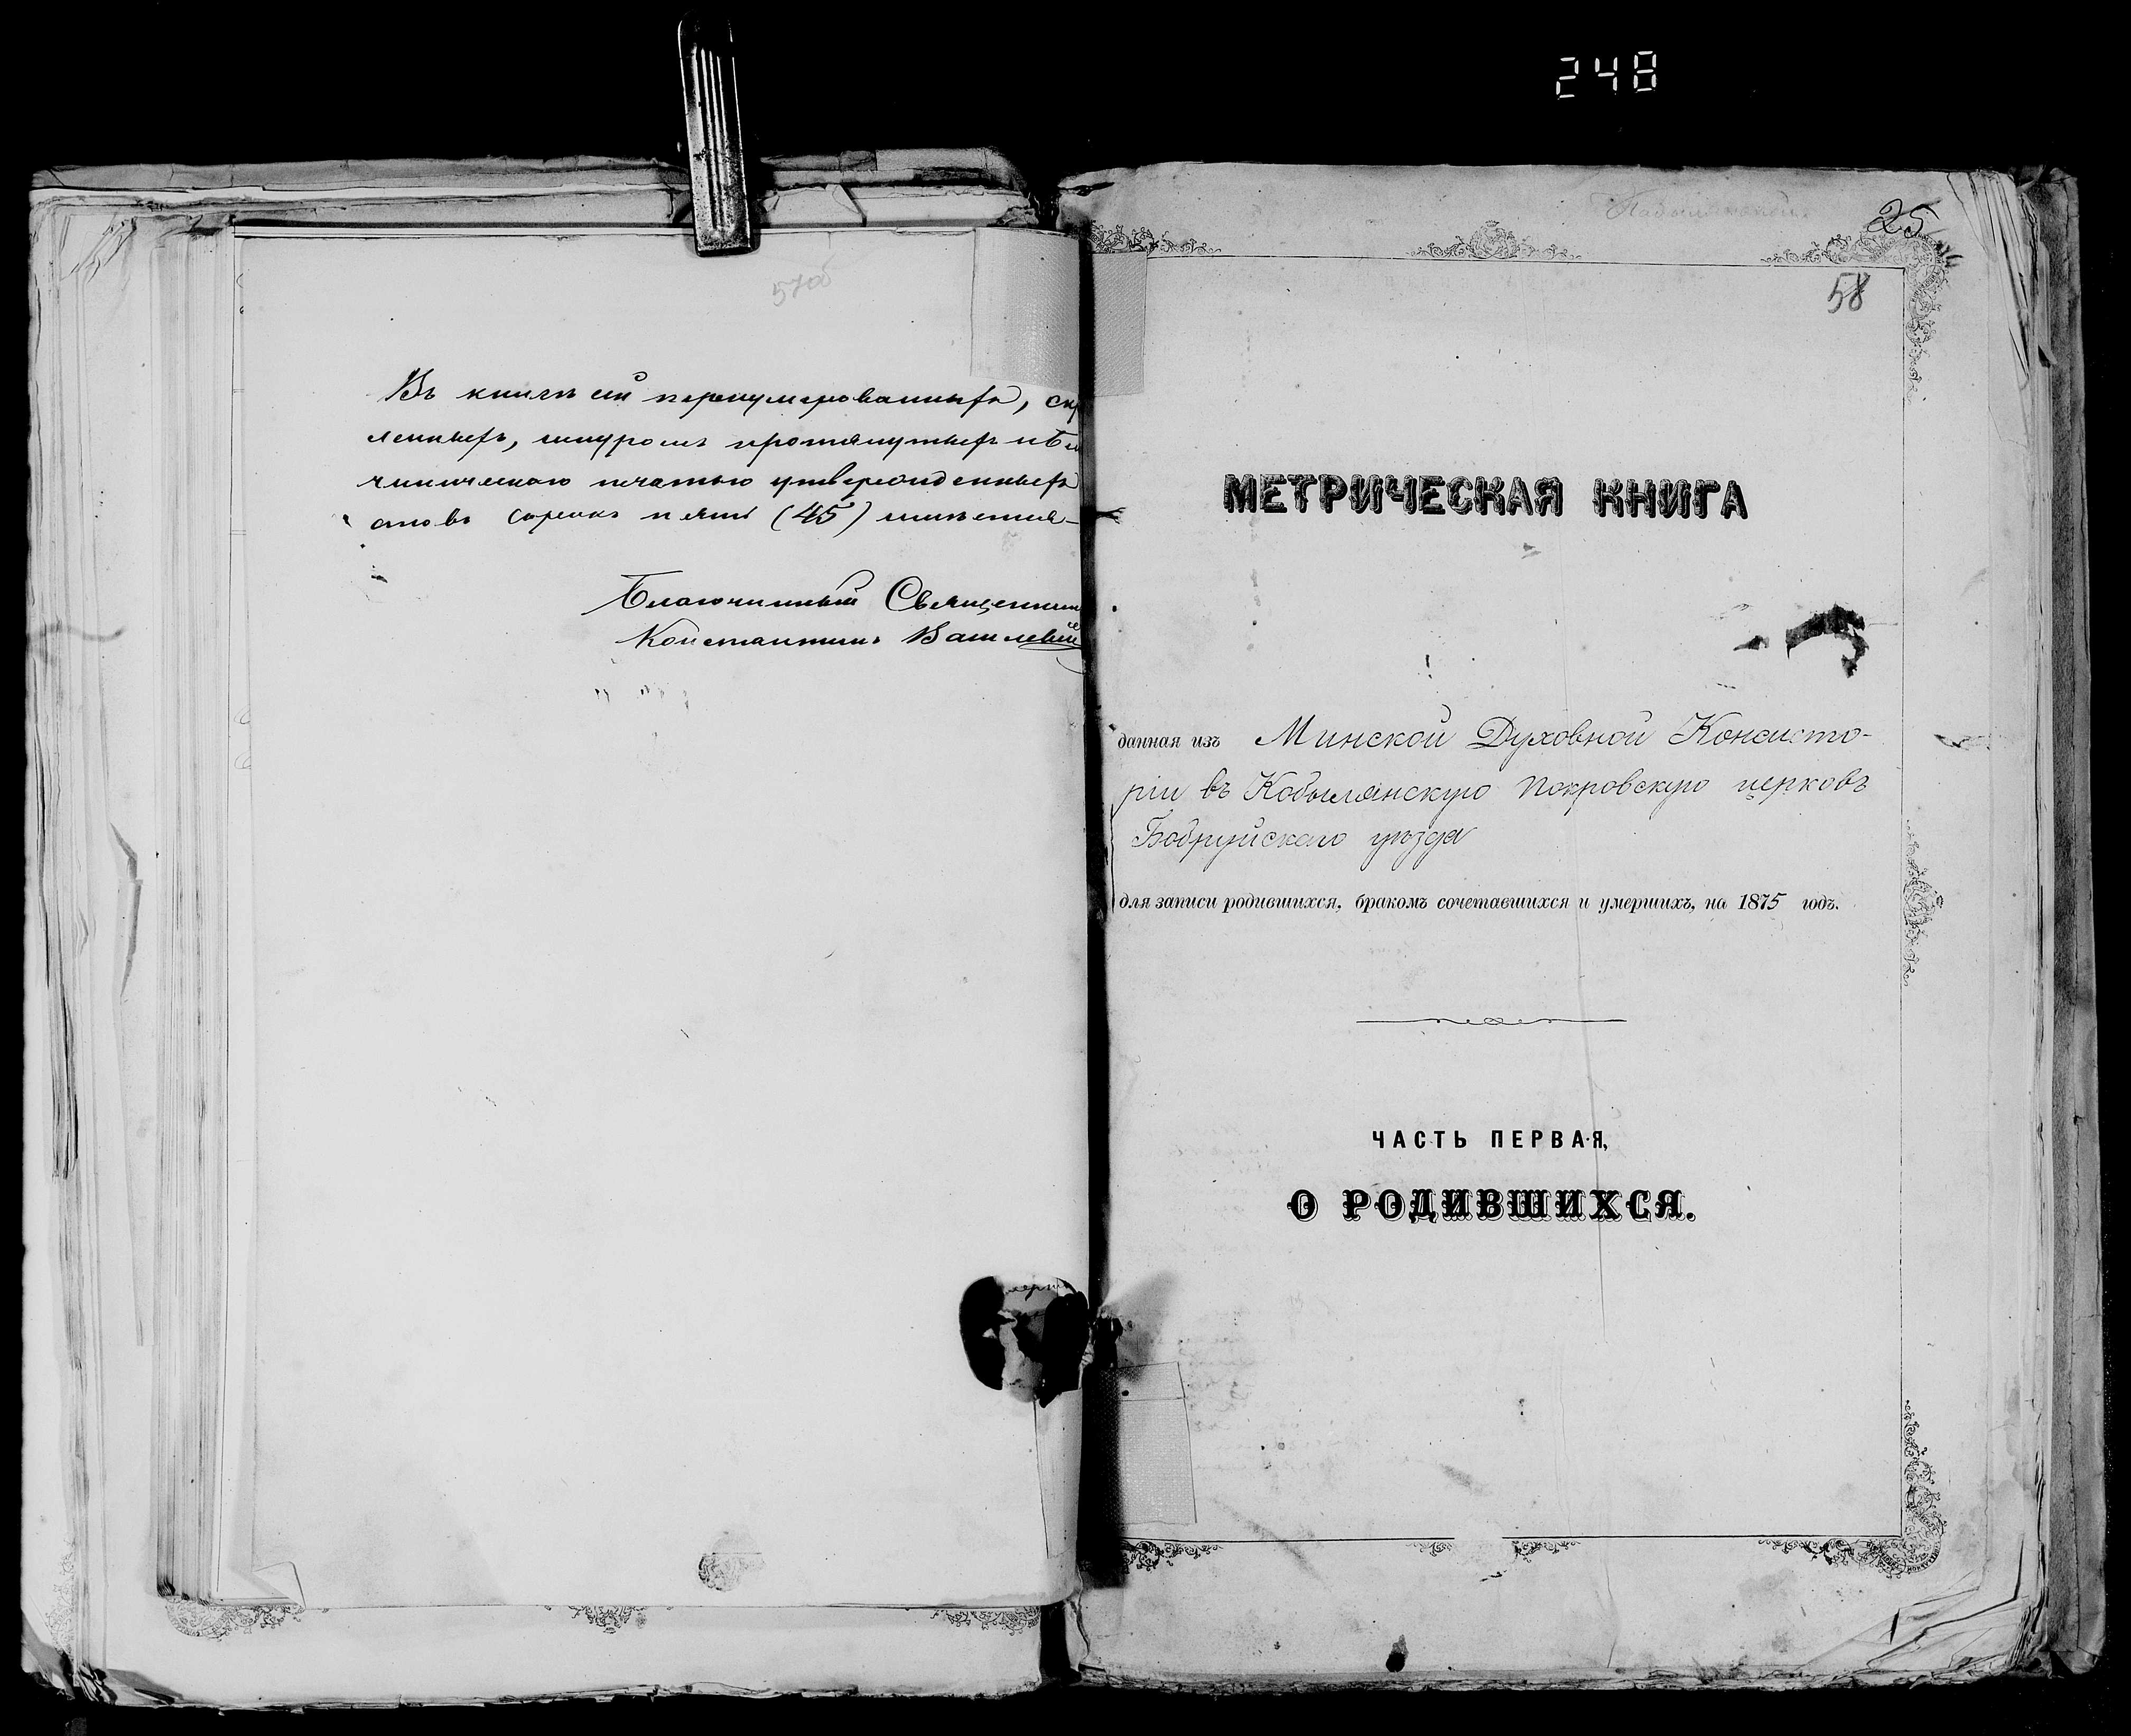 248
57об
Въ книгѣ сей перенумерованныхъ, скр
ленныхъ, шнуромъ протянутыхъ и бла
чинническою печатью утвержденныхъ
стовъ сорокъ пять (45) имѣется
Благочинный Священник
Константинъ
25
58
МЕТРИЧЕСКАЯ КНИГА
данная изъ Минской Духовной Консисто-
ріи въ Кобылянскую Покровскую церковь
Бобруйскаго уѣзда
для записи родившихся, бракомъ сочетавшихся и умершихъ, на 1875 годъ.
ЧАСТЬ ПЕРВАЯ,
О РОДИВШИХСЯ.